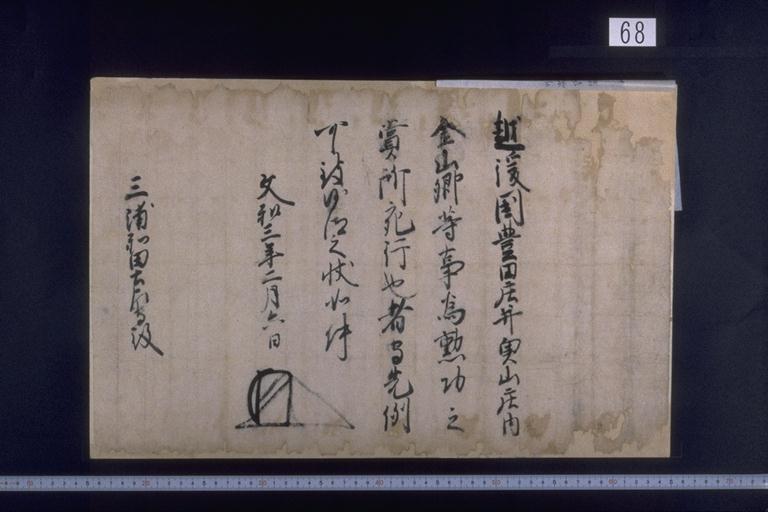 68
越後国豊田庄并奥山庄内
金山郷等事為勲功之
賞所宛行也者守先例
可致沙汰之状如件
文和三年二月六日
三浦和田